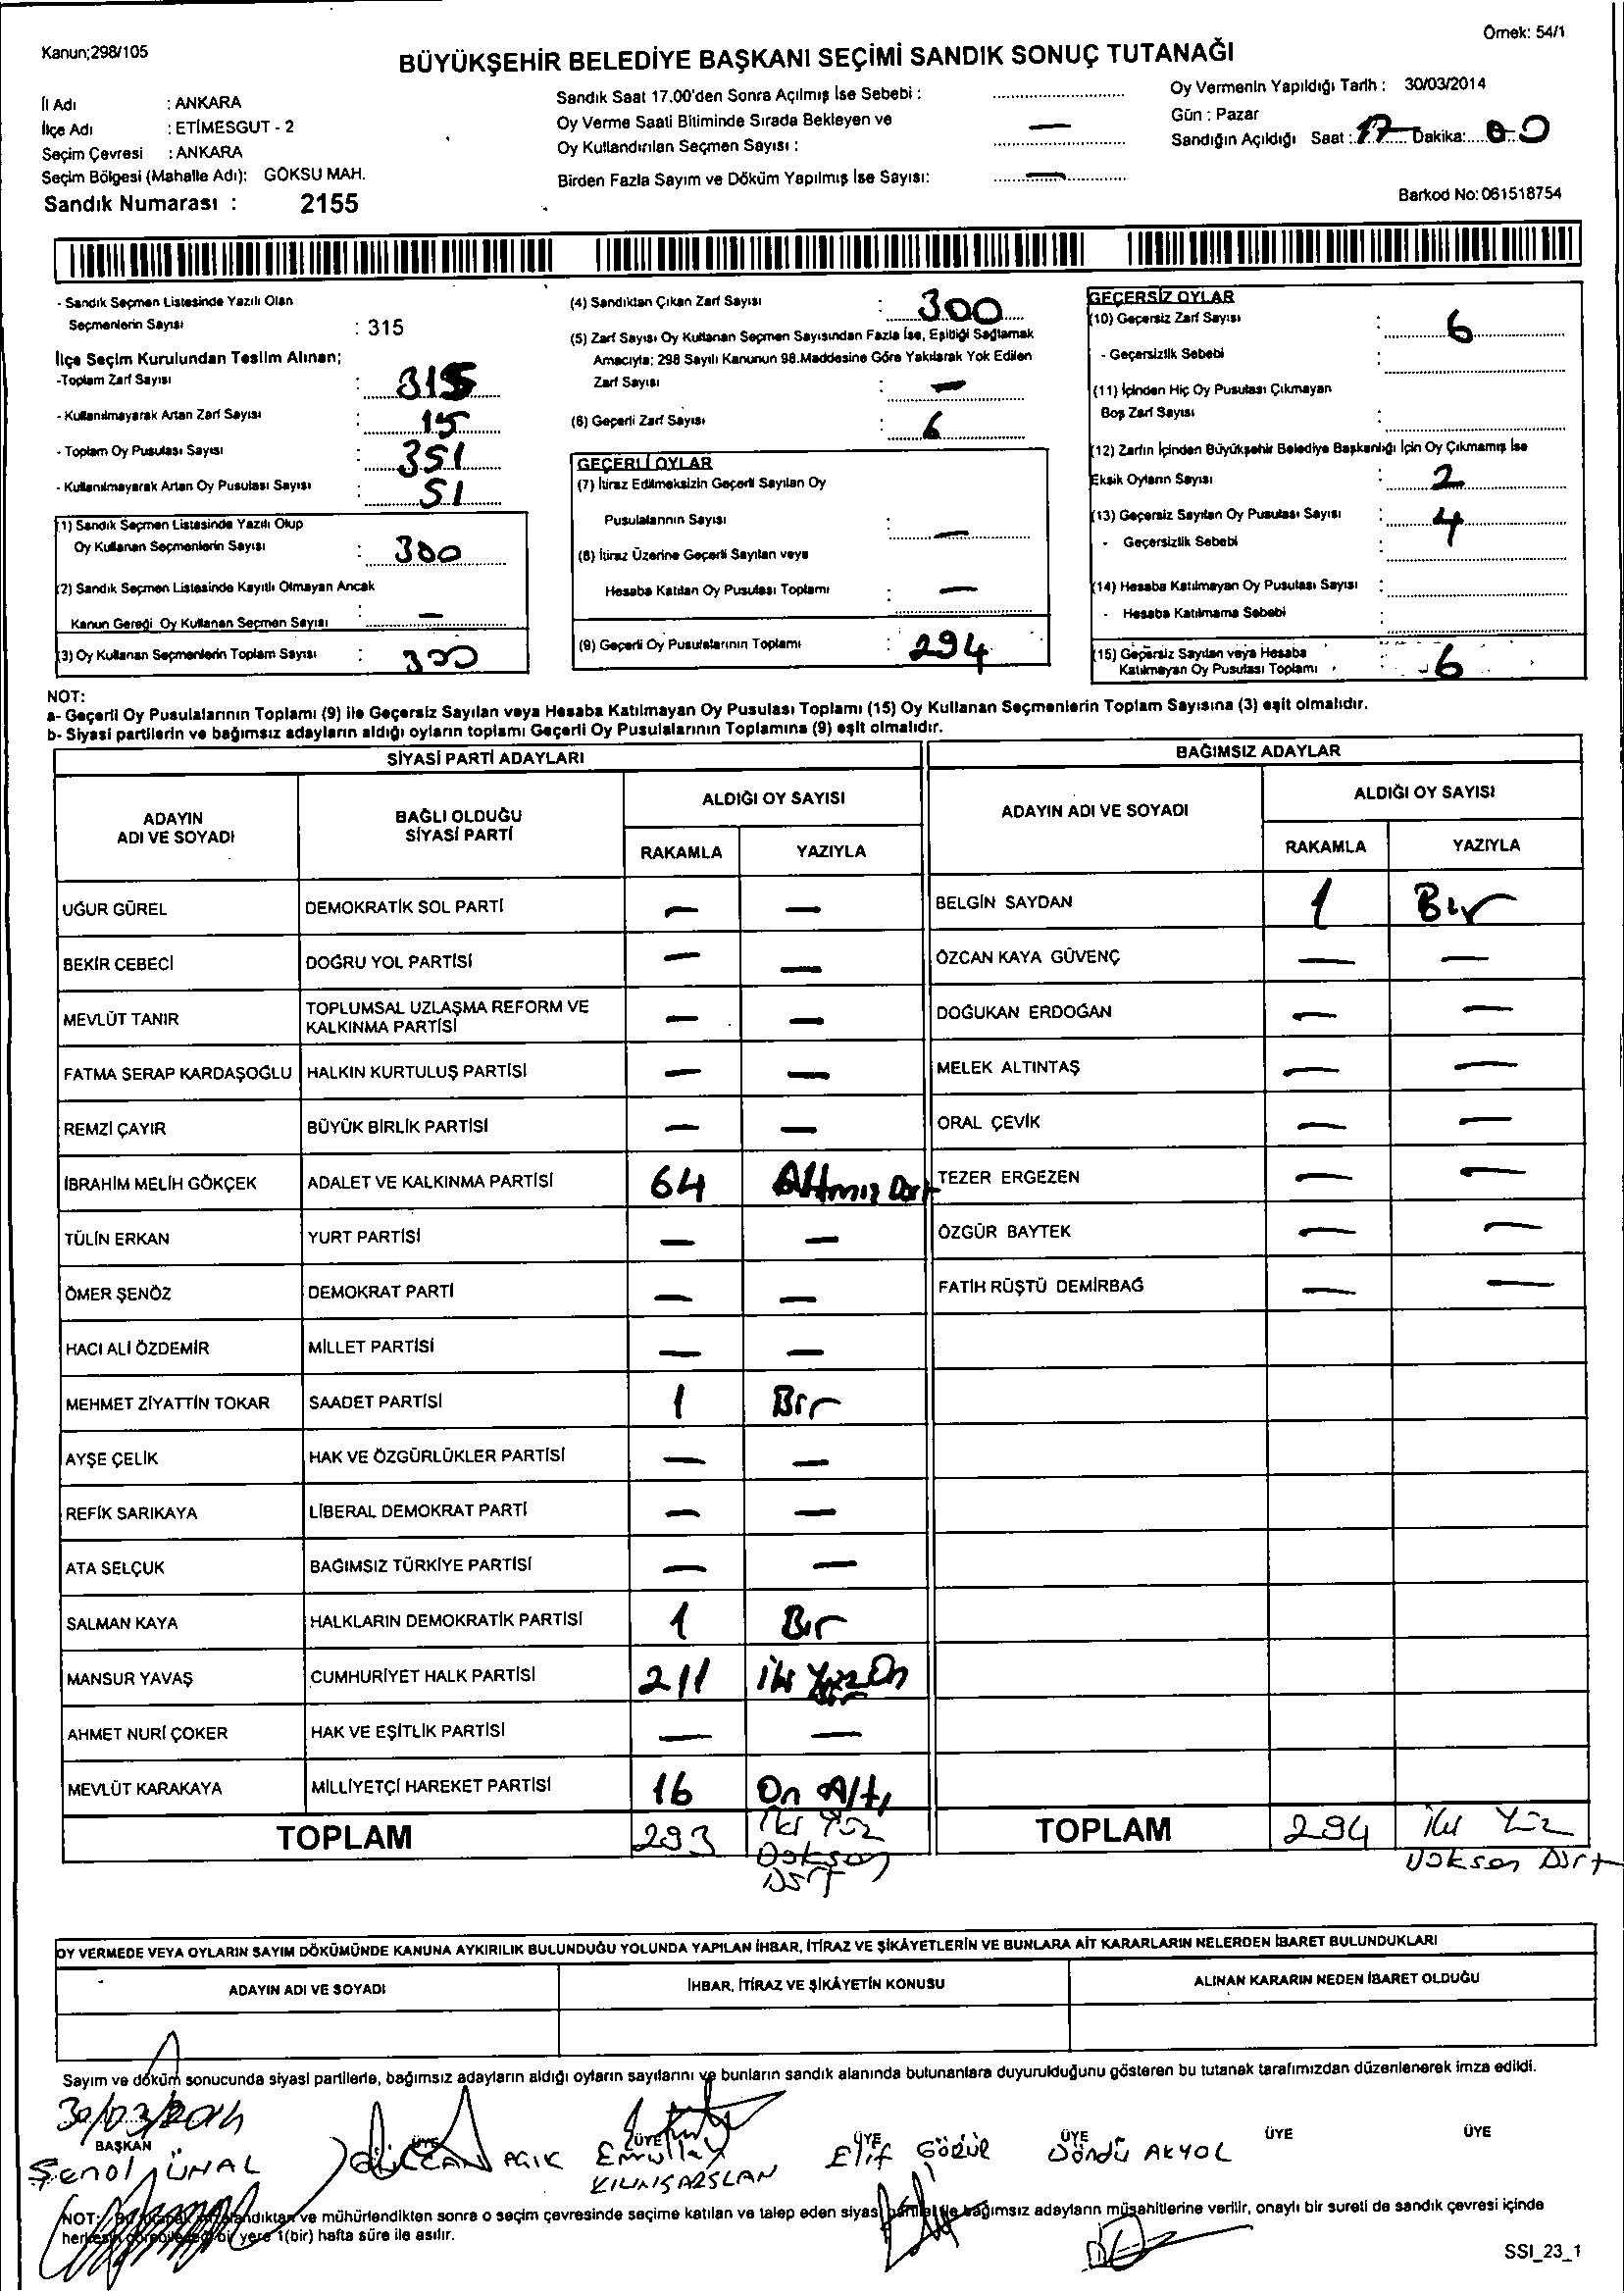 Kanun;298/105
Örnek: 54/1
BÜYÜKŞEHİR BELEDİYE BAŞKANI SEÇİMİ SANDIK SONUÇ TUTANAĞI
İl Adı : ANKARA
İlçe Adı : ETİMESGUT - 2
Seçim Çevresi : ANKARA
Seçim Bölgesi (Mahalle Adı): GÖKSU MAH.
Sandık Numarası : 2155
Sandık Saat 17.00'den Sonra Açılmış İse Sebebi :
Oy Verme Saati Bitiminde Sırada Bekleyen ve
Oy Kullandırılan Seçmen Sayısı : —
Birden Fazla Sayım ve Döküm Yapılmış İse Sayısı: —
Oy Vermenin Yapıldığı Tarih : 30/03/2014
Gün : Pazar
Sandığın Açıldığı Saat : 17 Dakika: 00
Barkod No: 061518754
- Sandık Seçmen Listesinde Yazılı Olan
Seçmenlerin Sayısı : 315
İlçe Seçim Kurulundan Teslim Alınan;
-Toplam Zarf Sayısı : 315
- Kullanılmayarak Artan Zarf Sayısı : 15
- Toplam Oy Pusulası Sayısı : 351
- Kullanılmayarak Artan Oy Pusulası Sayısı : 51
(1) Sandık Seçmen Listesinde Yazılı Olup
Oy Kullanan Seçmenlerin Sayısı : 300
(2) Sandık Seçmen Listesinde Kayıtlı Olmayan Ancak
Kanun Gereği Oy Kullanan Seçmen Sayısı : —
(3) Oy Kullanan Seçmenlerin Toplam Sayısı : 300
(4) Sandıktan Çıkan Zarf Sayısı : 300
(5) Zarf Sayısı Oy Kullanan Seçmen Sayısından Fazla İse, Eşitliği Sağlamak
Amacıyla; 298 Sayılı Kanunun 98.Maddesine Göre Yakılarak Yok Edilen
Zarf Sayısı : —
(6) Geçerli Zarf Sayısı : 6
GEÇERLİ OYLAR
(7) İtiraz Edilmeksizin Geçerli Sayılan Oy
Pusulalarının Sayısı : —
(8) İtiraz Üzerine Geçerli Sayılan veya
Hesaba Katılan Oy Pusulası Toplamı : —
(9) Geçerli Oy Pusulalarının Toplamı : 294
GEÇERSİZ OYLAR
(10) Geçersiz Zarf Sayısı : 6
- Geçersizlik Sebebi :
(11) İçinden Hiç Oy Pusulası Çıkmayan
Boş Zarf Sayısı :
(12) Zarfın İçinden Büyükşehir Belediye Başkanlığı İçin Oy Çıkmamış İse
Eksik Oyların Sayısı : 2
(13) Geçersiz Sayılan Oy Pusulası Sayısı : 4
- Geçersizlik Sebebi :
(14) Hesaba Katılmayan Oy Pusulası Sayısı :
- Hesaba Katılmama Sebebi :
(15) Geçersiz Sayılan veya Hesaba
Katılmayan Oy Pusulası Toplamı : 6
NOT:
a- Geçerli Oy Pusulalarının Toplamı (9) ile Geçersiz Sayılan veya Hesaba Katılmayan Oy Pusulası Toplamı (15) Oy Kullanan Seçmenlerin Toplam Sayısına (3) eşit olmalıdır.
b- Siyasi partilerin ve bağımsız adayların aldığı oyların toplamı Geçerli Oy Pusulalarının Toplamına (9) eşit olmalıdır.
SİYASİ PARTİ ADAYLARI
ADAYIN ADI VE SOYADI BAĞLI OLDUĞU SİYASİ PARTİ ALDIĞI OY SAYISI
RAKAMLA YAZIYLA
UĞUR GÜREL DEMOKRATİK SOL PARTİ — —
BEKİR CEBECİ DOĞRU YOL PARTİSİ — —
MEVLÜT TANIR TOPLUMSAL UZLAŞMA REFORM VE KALKINMA PARTİSİ — —
FATMA SERAP KARDAŞOĞLU HALKIN KURTULUŞ PARTİSİ — —
REMZİ ÇAYIR BÜYÜK BİRLİK PARTİSİ — —
İBRAHİM MELİH GÖKÇEK ADALET VE KALKINMA PARTİSİ 64 Altmış Dört
TÜLİN ERKAN YURT PARTİSİ — —
ÖMER ŞENÖZ DEMOKRAT PARTİ — —
HACI ALİ ÖZDEMİR MİLLET PARTİSİ — —
MEHMET ZİYATTİN TOKAR SAADET PARTİSİ 1 Bir
AYŞE ÇELİK HAK VE ÖZGÜRLÜKLER PARTİSİ — —
REFİK SARIKAYA LİBERAL DEMOKRAT PARTİ — —
ATA SELÇUK BAĞIMSIZ TÜRKİYE PARTİSİ — —
SALMAN KAYA HALKLARIN DEMOKRATİK PARTİSİ 1 Bir
MANSUR YAVAŞ CUMHURİYET HALK PARTİSİ 211 iki Yüz On Bir
AHMET NURİ ÇOKER HAK VE EŞİTLİK PARTİSİ — —
MEVLÜT KARAKAYA MİLLİYETÇİ HAREKET PARTİSİ 16 On Altı
TOPLAM 293 İki Yüz Doksan Dört
BAĞIMSIZ ADAYLAR
ADAYIN ADI VE SOYADI ALDIĞI OY SAYISI
RAKAMLA YAZIYLA
BELGİN SAYDAN 1 Bir
ÖZCAN KAYA GÜVENÇ — —
DOĞUKAN ERDOĞAN — —
MELEK ALTINTAŞ — —
ORAL ÇEVİK — —
TEZER ERGEZEN — —
ÖZGÜR BAYTEK — —
FATİH RÜŞTÜ DEMİRBAĞ — —
TOPLAM 294 iki Yüz Doksan Dört
OY VERMEDE VEYA OYLARIN SAYIM DÖKÜMÜNDE KANUNA AYKIRILIK BULUNDUĞU YOLUNDA YAPILAN İHBAR, İTİRAZ VE ŞİKÂYETLERİN VE BUNLARA AİT KARARLARIN NELERDEN İBARET BULUNDUKLARI
ADAYIN ADI VE SOYADI İHBAR, İTİRAZ VE ŞİKÂYETİN KONUSU ALINAN KARARIN NEDEN İBARET OLDUĞU
Sayım ve döküm sonucunda siyasi partilerle, bağımsız adayların aldığı oyların sayılarını ve bunların sandık alanında bulunanlara duyurulduğunu gösteren bu tutanak tarafımızdan düzenlenerek imza edildi.
30/03/2014
BAŞKAN ÜYE ÜYE ÜYE ÜYE ÜYE ÜYE
Şenol ÜNAL AÇIK Emrullah KILINÇARSLAN Elif GÖZÜR Döndü AKYOL
NOT: ve mühürlendikten sonra o seçim çevresinde seçime katılan ve talep eden siyasi bağımsız adayların müşahitlerine verilir, onaylı bir sureti de sandık çevresi içinde
bir yere 1(bir) hafta süre ile asılır.
SSI_23_1